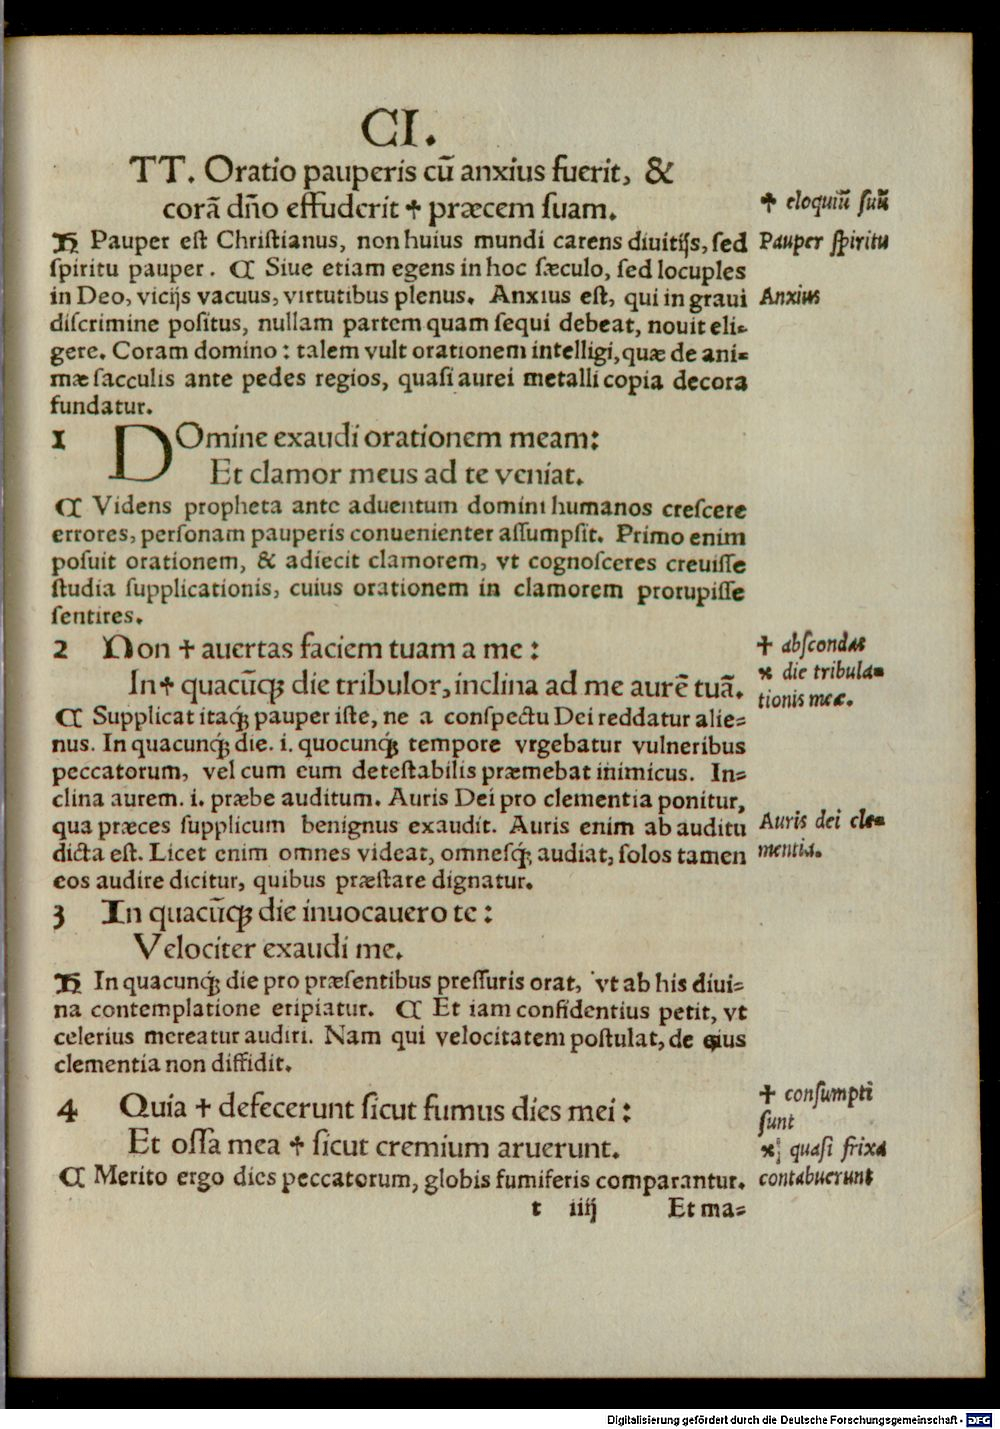 CI.
TT. Oratio pauperis cū anxius fuerit, &
corā dño effuderit ☨ præcem suam.
☨ eloquiū suū
Ħ Pauper est Christianus, non huius mundi carens diuitijs, sed
Pauper spiritu
spiritu pauper. ₡ Siue etiam egens in hoc sæculo, sed locuples
in Deo, vicijs vacuus, virtutibus plenus. Anxius est, qui in graui
Anxius
discrimine positus, nullam partem quam sequi debeat, nouit eli=
gere. Coram domino: talem vult orationem intelligi, quæ de ani=
mæ sacculis ante pedes regios, quasi aurei metalli copia decora
fundatur.
1 DOmine exaudi orationem meam:
Et clamor meus ad te veniat.
₡ Videns propheta ante aduentum domini humanos crescere
errores, personam pauperis conuenienter assumpsit. Primo enim
posuit orationem, & adiecit clamorem, vt cognosceres creuisse
studia supplicationis, cuius orationem in clamorem prorupisse
sentires.
2 Non ☨ auertas faciem tuam a me:
☨ abscondas
In ☨ quacūqꝫ die tribulor, inclina ad me aurē tuā.
⁜ die tribula=
tionis meæ.
₡ Supplicat itaqꝫ pauper iste, ne a conspectu Dei reddatur alie=
nus. In quacunqꝫ die. i. quocunqꝫ tempore vrgebatur vulneribus
peccatorum, vel cum eum detestabilis præmebat inimicus. In=
clina aurem. i. præbe auditum. Auris Dei pro clementia ponitur,
qua præces supplicum benignus exaudit. Auris enim ab auditu
Auris dei cle=
dicta est. Licet enim omnes videat, omnesqꝫ audiat, solos tamen
mentia.
eos audire dicitur, quibus præstare dignatur.
3 In quacūqꝫ die inuocauero te:
Velociter exaudi me.
Ħ In quacunqꝫ die pro præsentibus pressuris orat, vt ab his diui=
na contemplatione eripiatur. ₡ Et iam confidentius petit, vt
celerius mereatur audiri. Nam qui velocitatem postulat, de eius
clementia non diffidit.
4 Quia ☨ defecerunt sicut fumus dies mei:
☨ consumpti
sunt
Et ossa mea ☨ sicut cremium aruerunt.
⁜ quasi frixa
₡ Merito ergo dies peccatorum, globis fumiferis comparantur.
contabuerunt
t iiij Et ma=
Digitalisierung gefördert durch die Deutsche Forschungsgemeinschaft - DFG